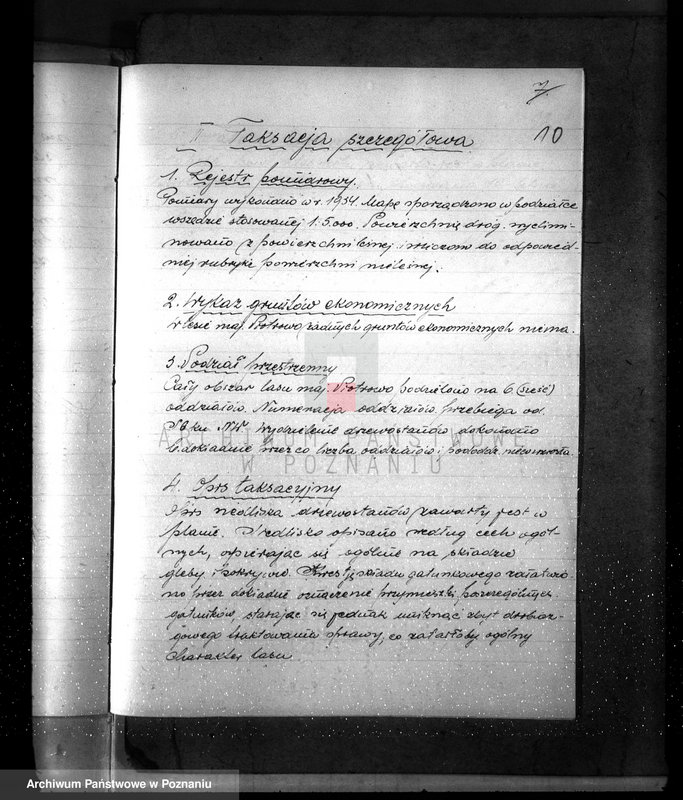 7.
10
II Taksacja szczegółowa
1. Rejestr pomiarowy.
Pomiary wykonano w r. 1934. Mapę sporządzono w podziałce
wszędzie stosowanej 1:5.000. Powierzchnię dróg wyelimi-
nowano z powierzchni leśnej i do odpowied-
niej rubryki powierzchni nieleśnej.
2. Wykaz gruntów ekonomicznych
W lesie maj. Piotrowo żadnych gruntów ekonomicznych niema.
3. Podział przestrzenny
Cały obszar lasu maj. Piotrowo podzielono na 6 (sześć)
oddziałów. Numeracja oddziałów przebiega od
ku Wydzielenie drzewostanów dokonano
dokładnie przez co liczba oddziałów i pododdz.
4. Opis taksacyjny
Opis siedliska drzewostanów zawarty jest w
planie. Siedlisko opisano według cech ogól-
nych, opierając się ogólnie na składzie
gleby i pokrywie. składu gatunkowego załatwio-
no przez dokładne oznaczenie przymieszki poszczególnych
gatunków, starając się jednak uniknąć zbyt drobiaz-
gowego traktowania sprawy, co zatarłoby ogólny
charakter lasu.
ARCHIWUM PAŃSTWOWE
W POZNANIU
Archiwum Państwowe w Poznaniu